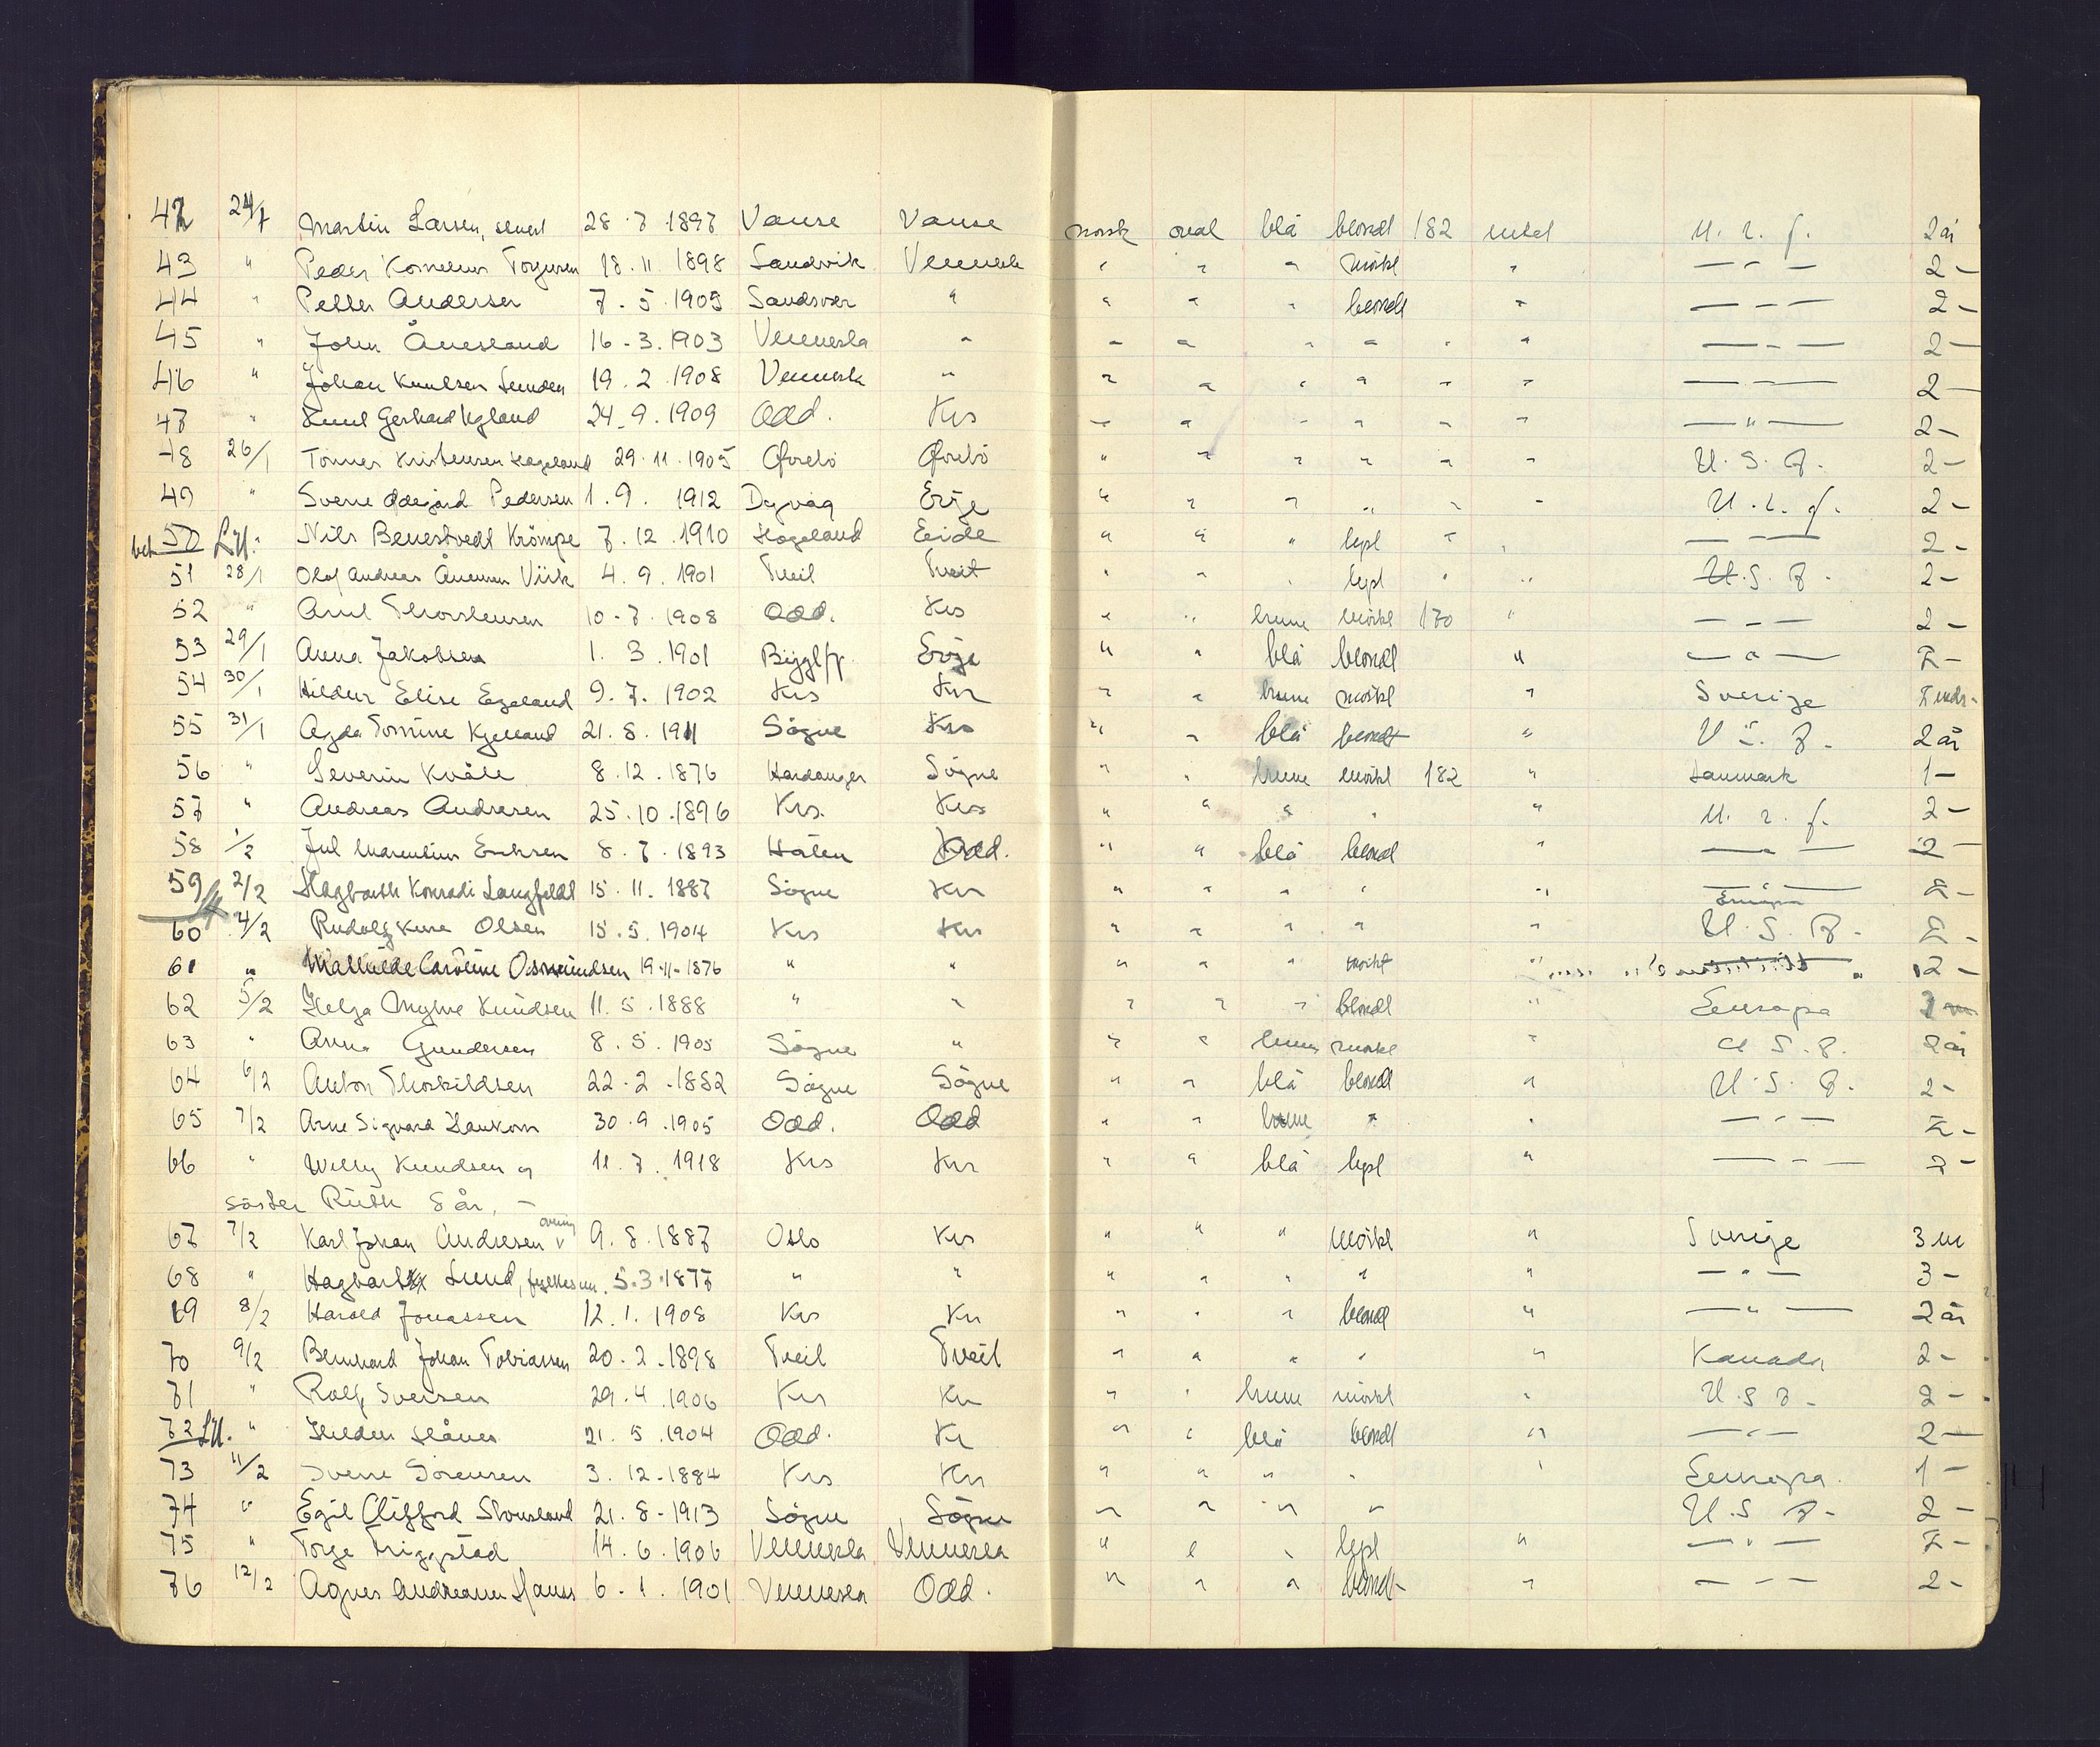 42 24/1 Martin Larsen, 28.7.1897 Vanse Vanse norsk oval blå blondt 182 intet U. s. f. 2 år
43 " Peder Kornelius Torjusen 18.11 1898 Sandvik Vennesla " " " mörkt " — " — 2 —
44 " Petter Andersen 7.5.1905 Sandsvær " " " " blondt " — " — 2 —
45 " John Åneslaand 16.3.1903 Vennesla " " " " " " " — " — 2 —
46 " Johan Knutsen 19.2.1908 Vennesla " " " " " " " — " — 2 —
47 " Knut Gerhard Kyland 24.9.1909 Odd. Krs " " " " " " — " — 2 —
48 26/1 Tönnes Kristensen Hægeland 29.11.1905 Övrebö Övrebö " " " " " " U.S.A. 2 —
49 " Sverre Pedersen 1.9. 1912 Dypvåg Evje " " " " " " U.S.A. 2 —
50 Nils Benestvedt 7.12.1910 Hægeland Eide " " " lyst " " — " — 2 —
51 28/1 Olaf Andreas Ånensen Viik 4.9.1901 Tveit Tveit " " " lyst " " U.S.A. 2 —
52 " Arne Thorstensen 10.7.1908 Odd. Krs " " brune mörkt 170 " — " — 2 —
53 29/1 Anna Jakobsen 1.3.1901 Evje " " blå blondt " — " — 2 —
54 30/1 Hildur Elise Egeland 9.7.1902 Krs Krs " " brune mörkt " Sverige
55 31/1 Agda Tomine Kjelland 21.8.1911 Sögne Krs " " blå blondt " U.S.A. 2 år
56 " Severin Kvåle 8.12.1876 Hardanger Sögne " " brune mörkt 182 " Danmark 1 —
57 " Andreas Andresen 25.10.1896 Krs. Krs " " " " " U. s. f. 2 —
58 1/2 Jul Marentius Eriksen 8.7.1893 Hålen Odd. " " blå blond " — " — 2 —
59 2/2 Hagbarth Konradi Langfeldt 15.11.1887 Sögne Krs " " " " " — " — Europa 2 —
60 4/2 Rudolf Olsen 15.5.1904 Krs Krs " " " " " U.S.A. 2 —
61 " Mathilde Caroline Osmundsen 19.11.1876 " " " " " mörkt " 2 —
62 5/2 Helga Knudsen 11.5.1888 " " " " " blondt " Europa
63 " Anna Gundersen 8.5.1905 Sögne " " " brune mörkt " U.S.A. 2 år
64 6/2 Anton Thorkildsen 22.2.1882 Sögne Sögne " " blå blondt " U.S.A. 2 —
65 7/2 Arne Sigvard Haukom 30.9.1905 Odd. Odd " " brune " " — " — 2 —
66 " Willy Knudsen og 11.7.1918 Krs Krs " " blå lyst " — " — 2 —
söster Ruth 8 år, —
67 7/2 Karl Johan Andresen 9.8.1887 Oslo Krs " " " mörkt " Sverige 3 m
68 " Hagbarth Lund, fylkesm. 5.3.1877 " " " " " " " — " — 3 —
69 8/2 Harald Jonassen 12.1.1908 Krs Krs " " " blond " — " — 2 år
70 9/2 Bernhard Johan Tobiassen 20.2.1898 Tveit Tveit " " " " " Kanada 2 —
71 " Rolf Sversen 29.4.1906 Krs Krs " " brune mörkt " U.S.A. 2 —
72 " Hildur Haanes 21.5.1904 Odd. Kr " " blå blondt " — " — 2 —
73 11/2 Sverre Sörensen 3.12.1884 Krs Krs " " " " " Europa. 1 —
74 " Egil Clifford Stousland 21.8.1913 Sögne Sögne " " " " U.S.A. 2 —
75 " Torge Triggstad 14.6.1906 Vennesla Vennesla " " " lyst " — " — 2 —
76 12/2 Agnes Andreanne Haus 6.1.1901 Vennesla Odd. " " " blondt " — " — 2 —